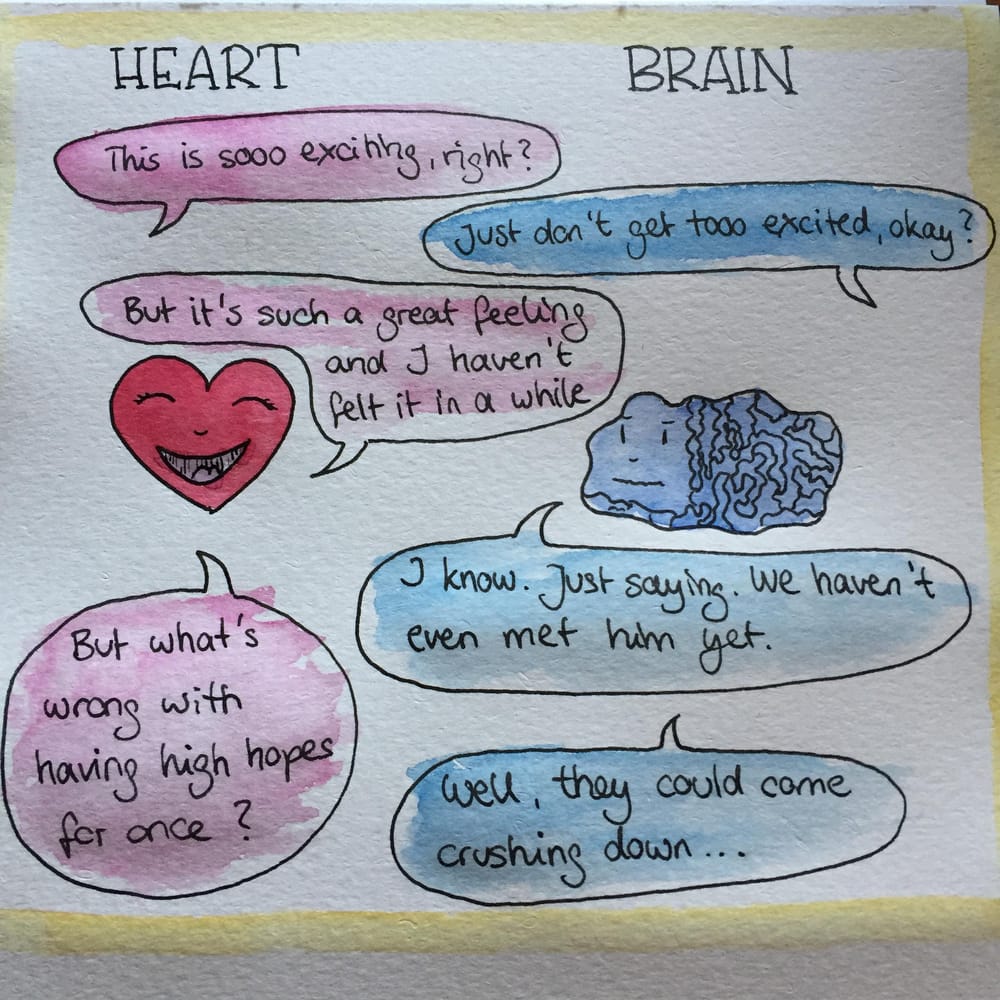 HEART
BRAIN
This is sooo exciting, right?
Just don't get tooo excited, okay?
But it's such a great feeling
and I haven't
felt it in a while
I know. Just saying. We haven't
even met him yet.
But what's
wrong with
having high hopes
for once?
Well, they could come
crushing down...